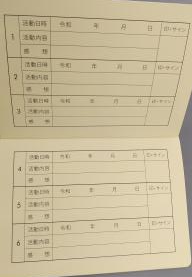 1 活動日時 令和 年 月 日 印・サイン
活動内容
感想
2 活動日時 令和 年 月 日 印・サイン
活動内容
感想
3 活動日時 令和 年 月 日 印・サイン
活動内容
感想
4 活動日時 令和 年 月 日 印・サイン
活動内容
感想
5 活動日時 令和 年 月 日 印・サイン
活動内容
感想
6 活動日時 令和 年 月 日 印・サイン
活動内容
感想